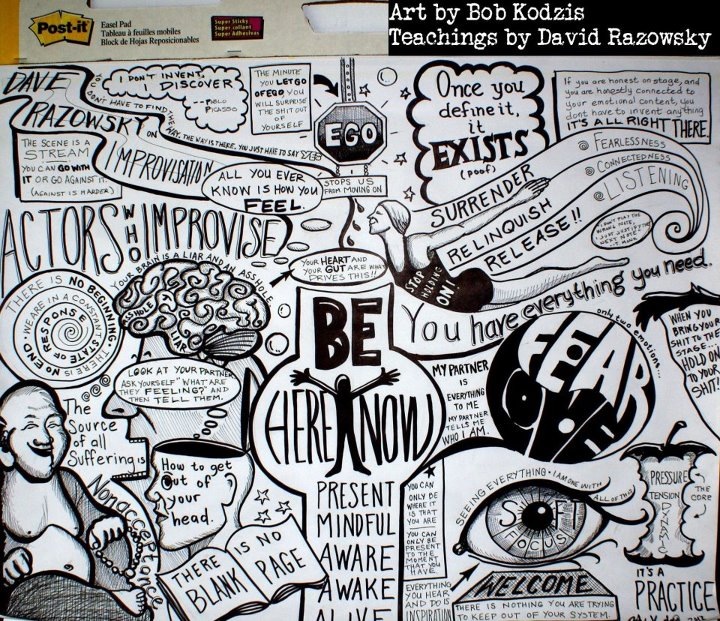 Post-it
Easel Pad
Tableau à feuilles mobiles
Block de Hojas Reposicionables
Super Sticky
Super collant
Super Adhesivas
Art by Bob Kodzis
Teachings by David Razowsky
DAVE
RAZOWSKY
ON
IMPROVISATION
YOU DON'T HAVE TO FIND THE WAY. THE WAY IS THERE. YOU JUST HAVE TO SAY YES
I DON'T INVENT,
I DISCOVER
-- PABLO
PICASSO
THE MINUTE
YOU LET GO
OF EGO YOU
WILL SURPRISE
THE SHIT OUT
OF
YOURSELF
EGO
STOPS US
FROM MOVING ON
Once you
define it,
it
EXISTS
(poof)
If you are honest on stage, and
you are honestly connected to
your emotional content, you
dont have to invent anything
IT'S ALL RIGHT THERE.
THE SCENE IS A
STREAM
YOU CAN GO WITH
IT OR GO AGAINST IT.
(AGAINST IS HARDER)
ALL YOU EVER
KNOW IS HOW YOU
FEEL.
FEARLESSNESS
CONNECTEDNESS
LISTENING
SURRENDER
RELINQUISH
RELEASE!!
DON'T PLAY THE
WRONG NOTE,
JUST JUSTIFY IT
NEXT
STOP
HOLDING
ON!
ACTORS WHO IMPROVISE
YOUR HEART AND
YOUR GUT ARE WHAT
DRIVES THIS!!
You have everything you need.
THERE IS NO BEGINNING.
THERE IS NO END.
WE ARE IN A CONSTANT
STATE OF RESPONSE
YOUR BRAIN IS A LIAR AND AN ASSHOLE
ASSHOLE
LIAR
LOOK AT YOUR PARTNER
ASK YOURSELF "WHAT ARE
THEY FEELING?" AND
THEN TELL THEM.
BE
HERE NOW
PRESENT
MINDFUL
AWARE
AWAKE
ALIVE
MY PARTNER
IS
EVERYTHING
TO ME
MY PARTNER
TELLS ME
WHO I AM.
only two emotions...
FEAR
LOVE
WHEN YOU
BRING YOUR
SHIT TO THE
STAGE...
HOLD ON
TO YOUR
SHIT!
The
Source
of all
Suffering is
Nonacceptance
How to get
out of
your
head.
THERE IS NO
BLANK PAGE
YOU CAN
ONLY BE
WHERE IT
IS THAT
YOU ARE
YOU CAN
ONLY BE
PRESENT
TO THE
MOMENT
THAT YOU
HAVE.
EVERYTHING
YOU HEAR
AND DO IS
INSPIRATION
SEEING EVERYTHING • I AM ONE WITH ALL OF THIS
SOFT
FOCUS
WELCOME
THERE IS NOTHING YOU ARE TRYING
TO KEEP OUT OF YOUR SYSTEM.
PRESSURE
TENSION
DYNAMIC
THE
CORE
IT'S A
PRACTICE